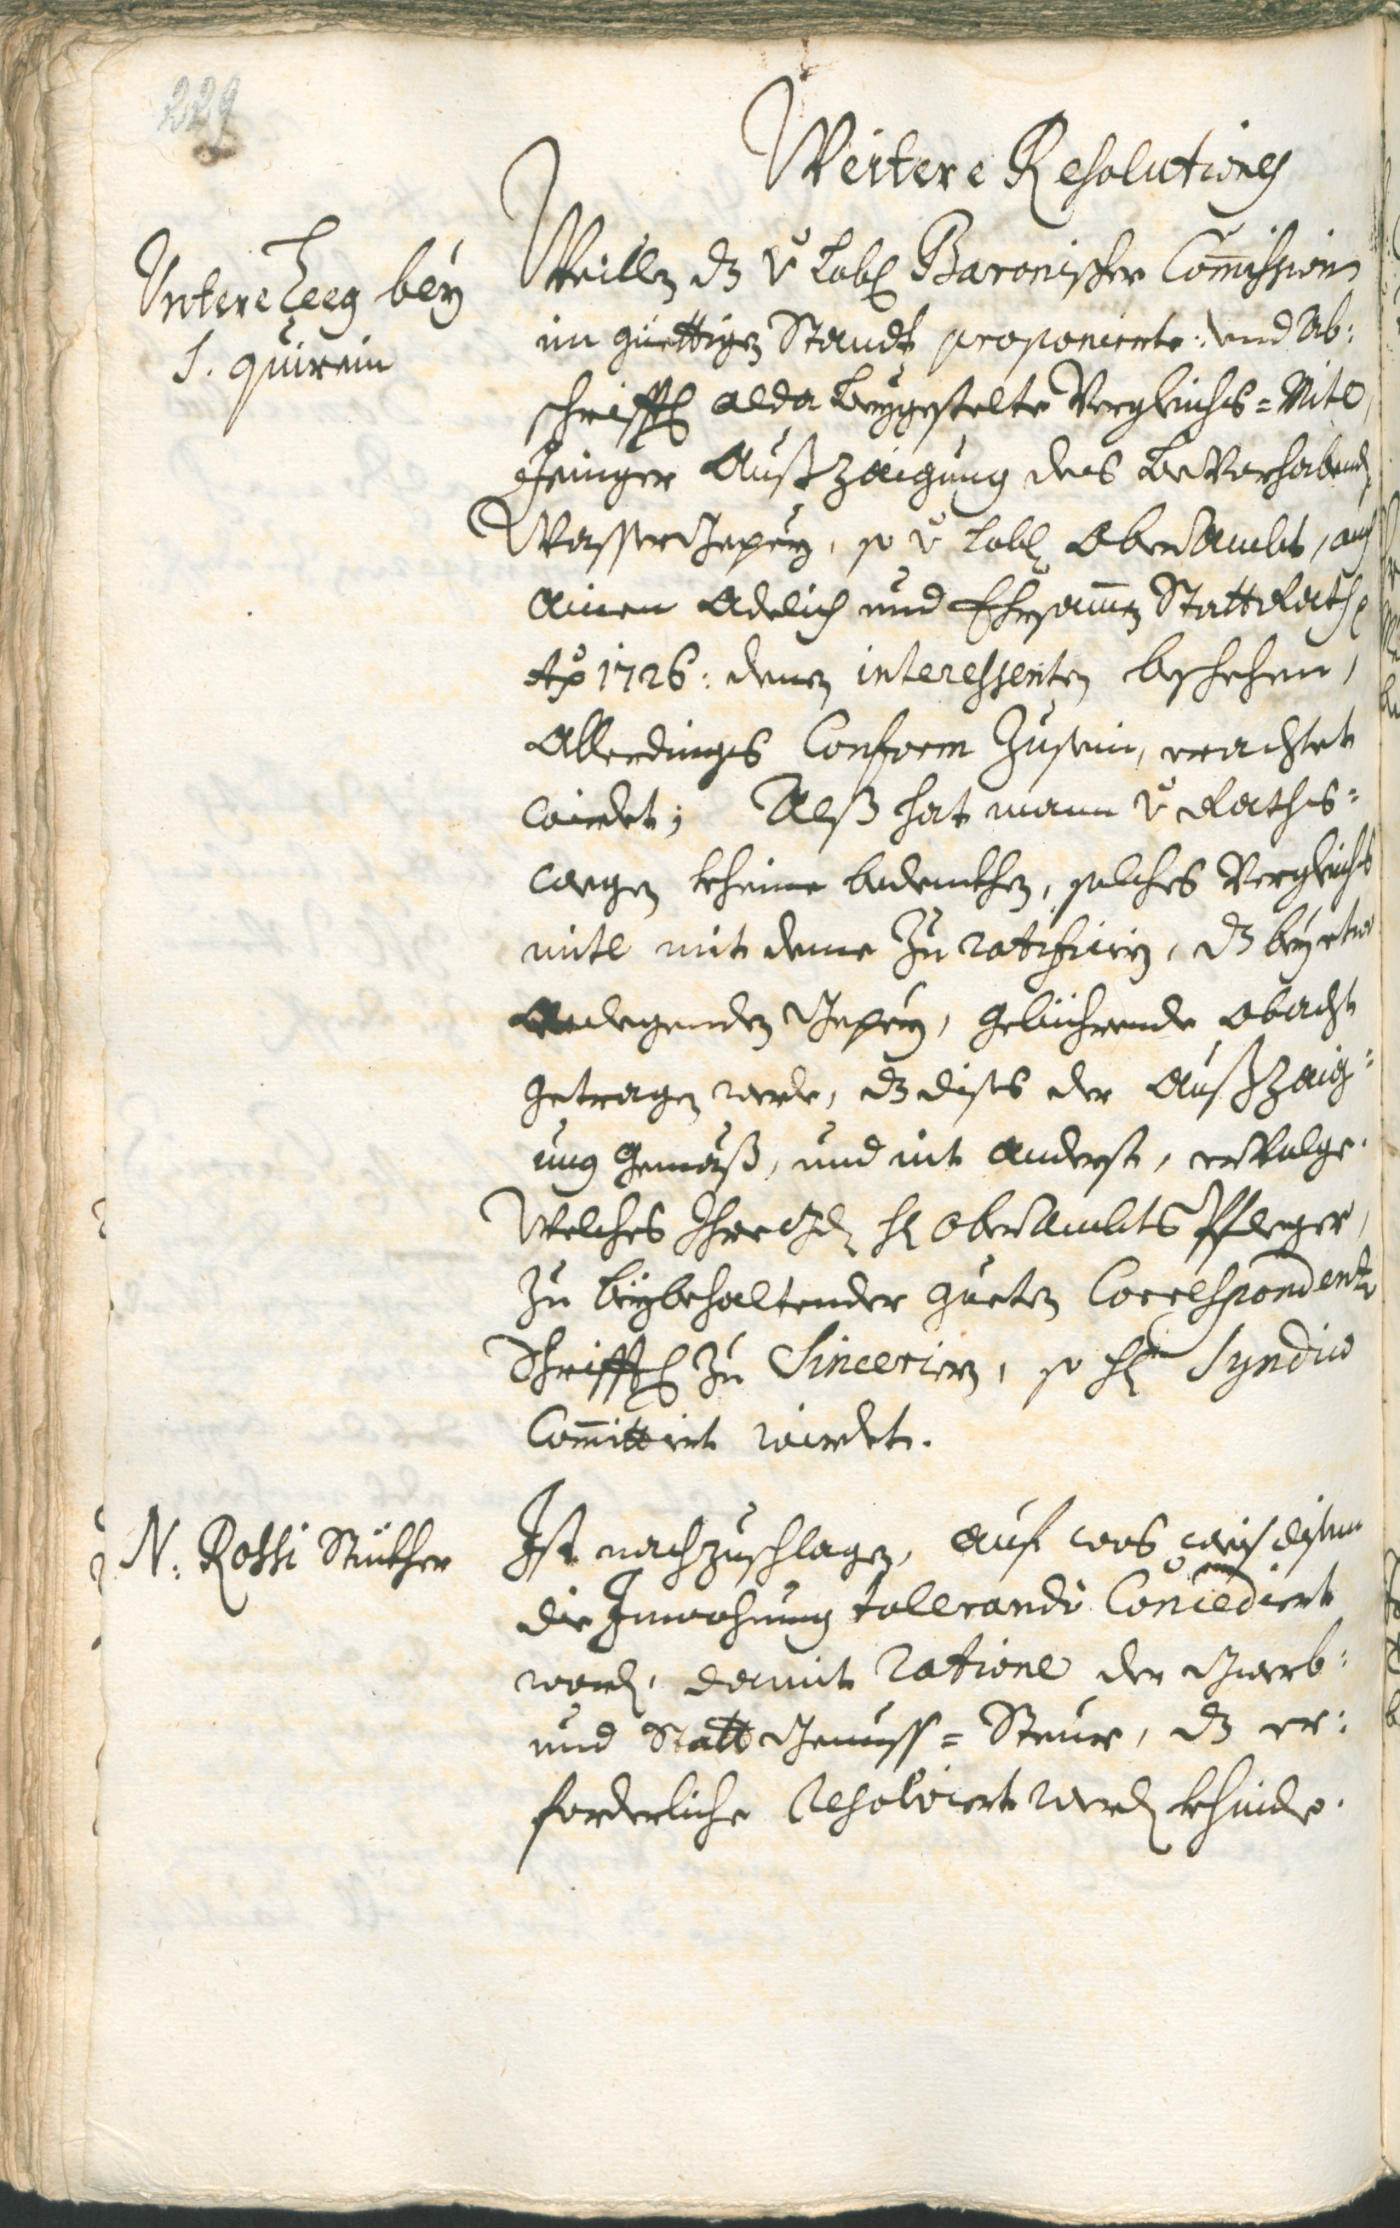 229
Weitere Resolutiones
Untere Leeg bey
S. Quirein
Weillen dz v. Lobl. Baronischer Commission
im güettigen Standt proponierte: und ab:
schrifftl. alda beygestelte Vergleichs=Mitl,
jeniger Außzaigung des bevorhabend.
Wassergepeÿ, so v. Lobl. OberAmbt, auch
ainen Adelich und Ehrsammen StattRath
Ao 1726: denen interessenten beschehen,
Allerdings Conform zusein, erachtet
wirdet; Alß hat mann v. Raths=
wegen kheine bedenkhen, solches Vergleichs
mitl mit deme zu ratificiern, dz bey etwo
anlegenden Gepeÿ, gebührende obacht
getragen werde, dz dises der Außzaig=
ung gemäß, und nit anderst, ervolge.
Welches Ihro Gd. H. OberAmbts Pfleger,
zu beybehaltender gueten Correspondentz
Schrifftl. zu Sincerirn, so H. Syndico
Committirt wirdet.
N: Rossi Stückher
Ist nachzuschlagen, auf was weis disem
die Inwohnung tollerando Concediert
word., damit ratione der Gwerb:
und Statt Genuss=Steur, dz er:
forderliche resolviert werd. khinde.